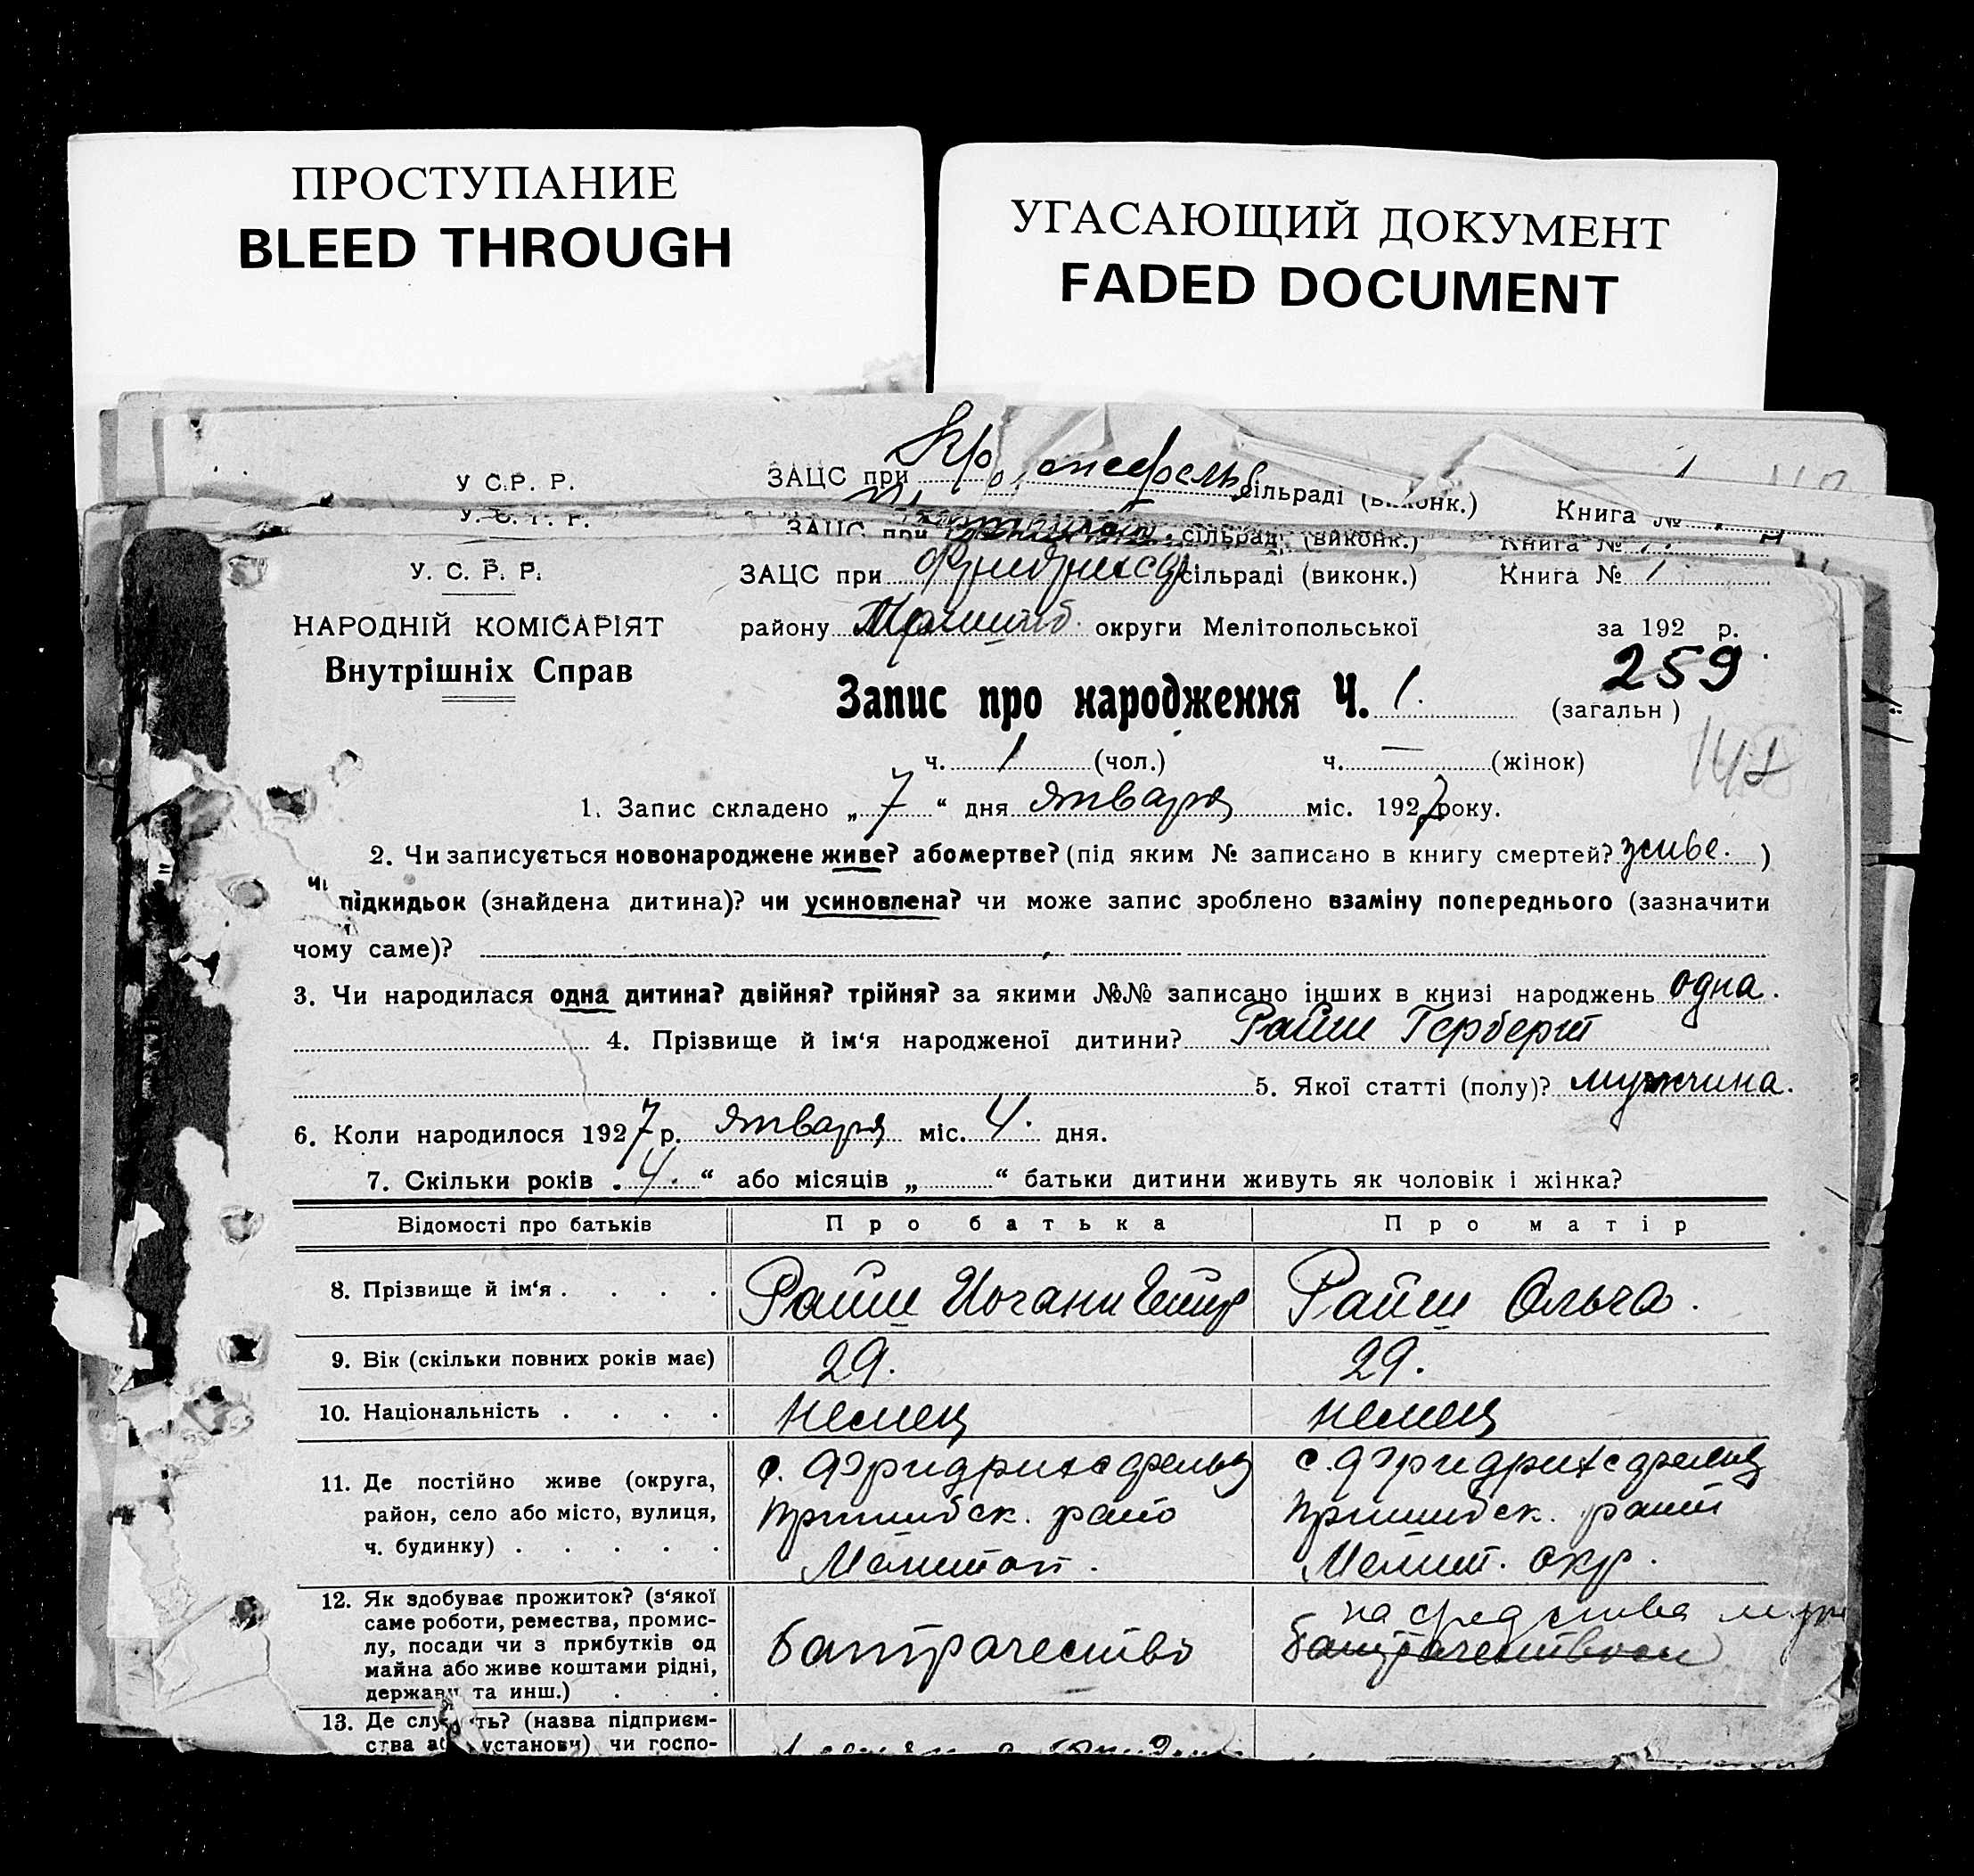 ПРОСТУПАНИЕ
BLEED THROUGH
УГАСАЮЩИЙ ДОКУМЕНТ
FADED DOCUMENT
У С.Р. Р. ЗАЦС при сільраді (виконк.) Книга №
У. С. Р. Р. ЗАЦС при сільраді (виконк.) Книга № 1.
У. С. Р. Р. ЗАЦС при Фридрихсф сільраді (виконк.) Книга № 1
НАРОДНІЙ КОМІСАРІЯТ району Пришиб. округи Мелітопольської за 192 р.
Внутрішніх Справ
259
Запис про народження Ч. 1. (загальн)
142
ч. 1 (чол.) ч. — (жінок)
1. Запис складено „ 7 “ дня января міс. 1927 року.
2. Чи записується новонароджене живе? або мертве? (під яким № записано в книгу смертей? живе. )
чи підкидьок (знайдена дитина)? чи усиновлена? чи може запис зроблено взаміну попереднього (зазначити
чому саме)?
3. Чи народилася одна дитина? двійня? трійня? за якими №№ записано інших в книзі народжень одна.
4. Прізвище й ім‘я народженої дитини? Райш Герберт
5. Якої статті (полу)? мужчина.
6. Коли народилося 1927 р. января міс. 4. дня.
7. Скільки років „ 4. “ або місяців „ “ батьки дитини живуть як чоловік і жінка?
Відомості про батьків Про батька Про матір
8. Прізвище й ім‘я . . . . Райш Иоганн Райш Ольга.
9. Вік (скільки повних років має) 29. 29.
10. Національність . . . . немец немец
11. Де постійно живе (округа, с. Фридрихсфельд с. Фридрихсфельд
район, село або місто, вулиця, Пришибск. райо Пришибск. райо
ч. будинку) . . . . . Мелитоп. Мелит. окр.
12. Як здобуває прожиток? (з‘якої на средства муж
саме роботи, ремества, промис-
лу, посади чи з прибутків од батрачество батрачеством
майна або живе коштами рідні,
держави та инш.) . . .
13. Де служить? (назва підприєм-
ства або установи) чи госпо-